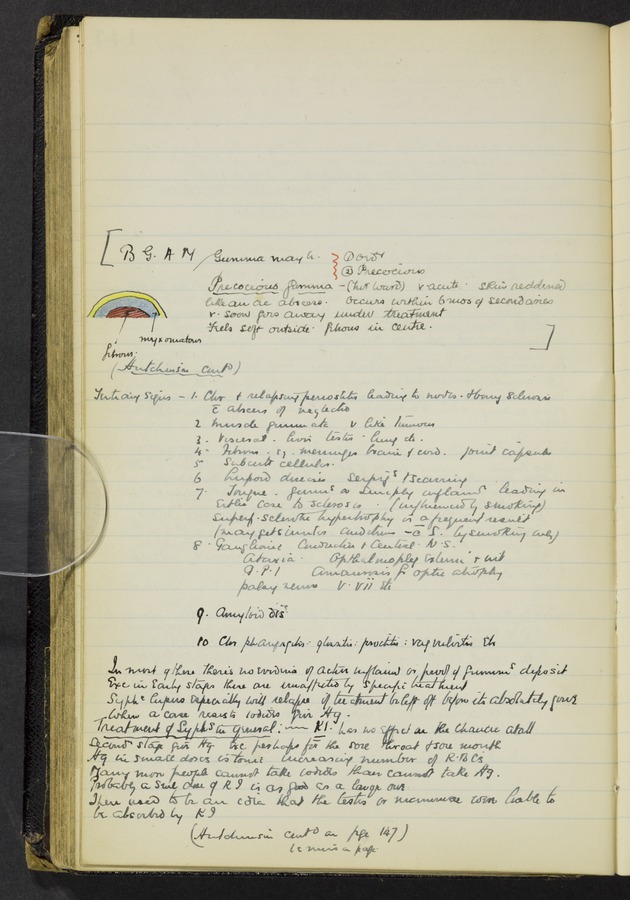 [ B G A M Gumma may be } ① Ord^y
② Precocious
Precocious gumma - v acute. skin reddened
like an ac abscess. Occurs within 6 mos of secondaries
v. soon goes away under treatment
Feels soft outside. fibrous in centre. ]
myxomatous
fibrous.
(Hutchinson cont^d)
Tertiary signs - 1. Chr + relapsing periostitis leading to nodes. + bony sclerosis
c̄ abscess if neglected
2 muscle gummata v like tumours
3. Visceral. liver testis. lung etc.
4. Fibrous. eg. meninges brain & cord. joint capsules
5 Subcut cellulas.
6 Lupoid diseases serpig^s + scarring
7. Tongue. gumm^s or simply inflam^d leading in
either case to sclerosis (influenced by smoking)
Superf. sclerotic hypertrophy is a frequent result
S. by smoking only)
8. Ganglionic N.S.
Ataxia. Ophthalmoplegia extern^a + int
G.P.I Amaurosis f^r optic atrophy
palsy nerves V. VII etc
9. Amyloid dis^e
10 Chr pharyngitis. glossitis. proctitis: vag vulvitis etc
In most of these there is no evidence of active inflam^n or proof of gumm^s deposit
Exc in early stages these are unaffected by specific treatment
Syph^c lupus especially will relapse if treatment be left off before it is absolutely gone
When a case resists iodides give Hg.
Treatment of Syph^s in general: - KI. has no effect on the chancre at all
Second stage give Hg exc perhaps for the sore throat + sore mouth
Hg in small doses is tonic increasing number of R.B.Cs
Many more people cannot take iodides than cannot take Hg.
Probably a small dose of KI is as good as a large one
There used to be an idea that the testes or mammae were liable to
be absorbed by KI
(Hutchinson cont^d on pge 147)